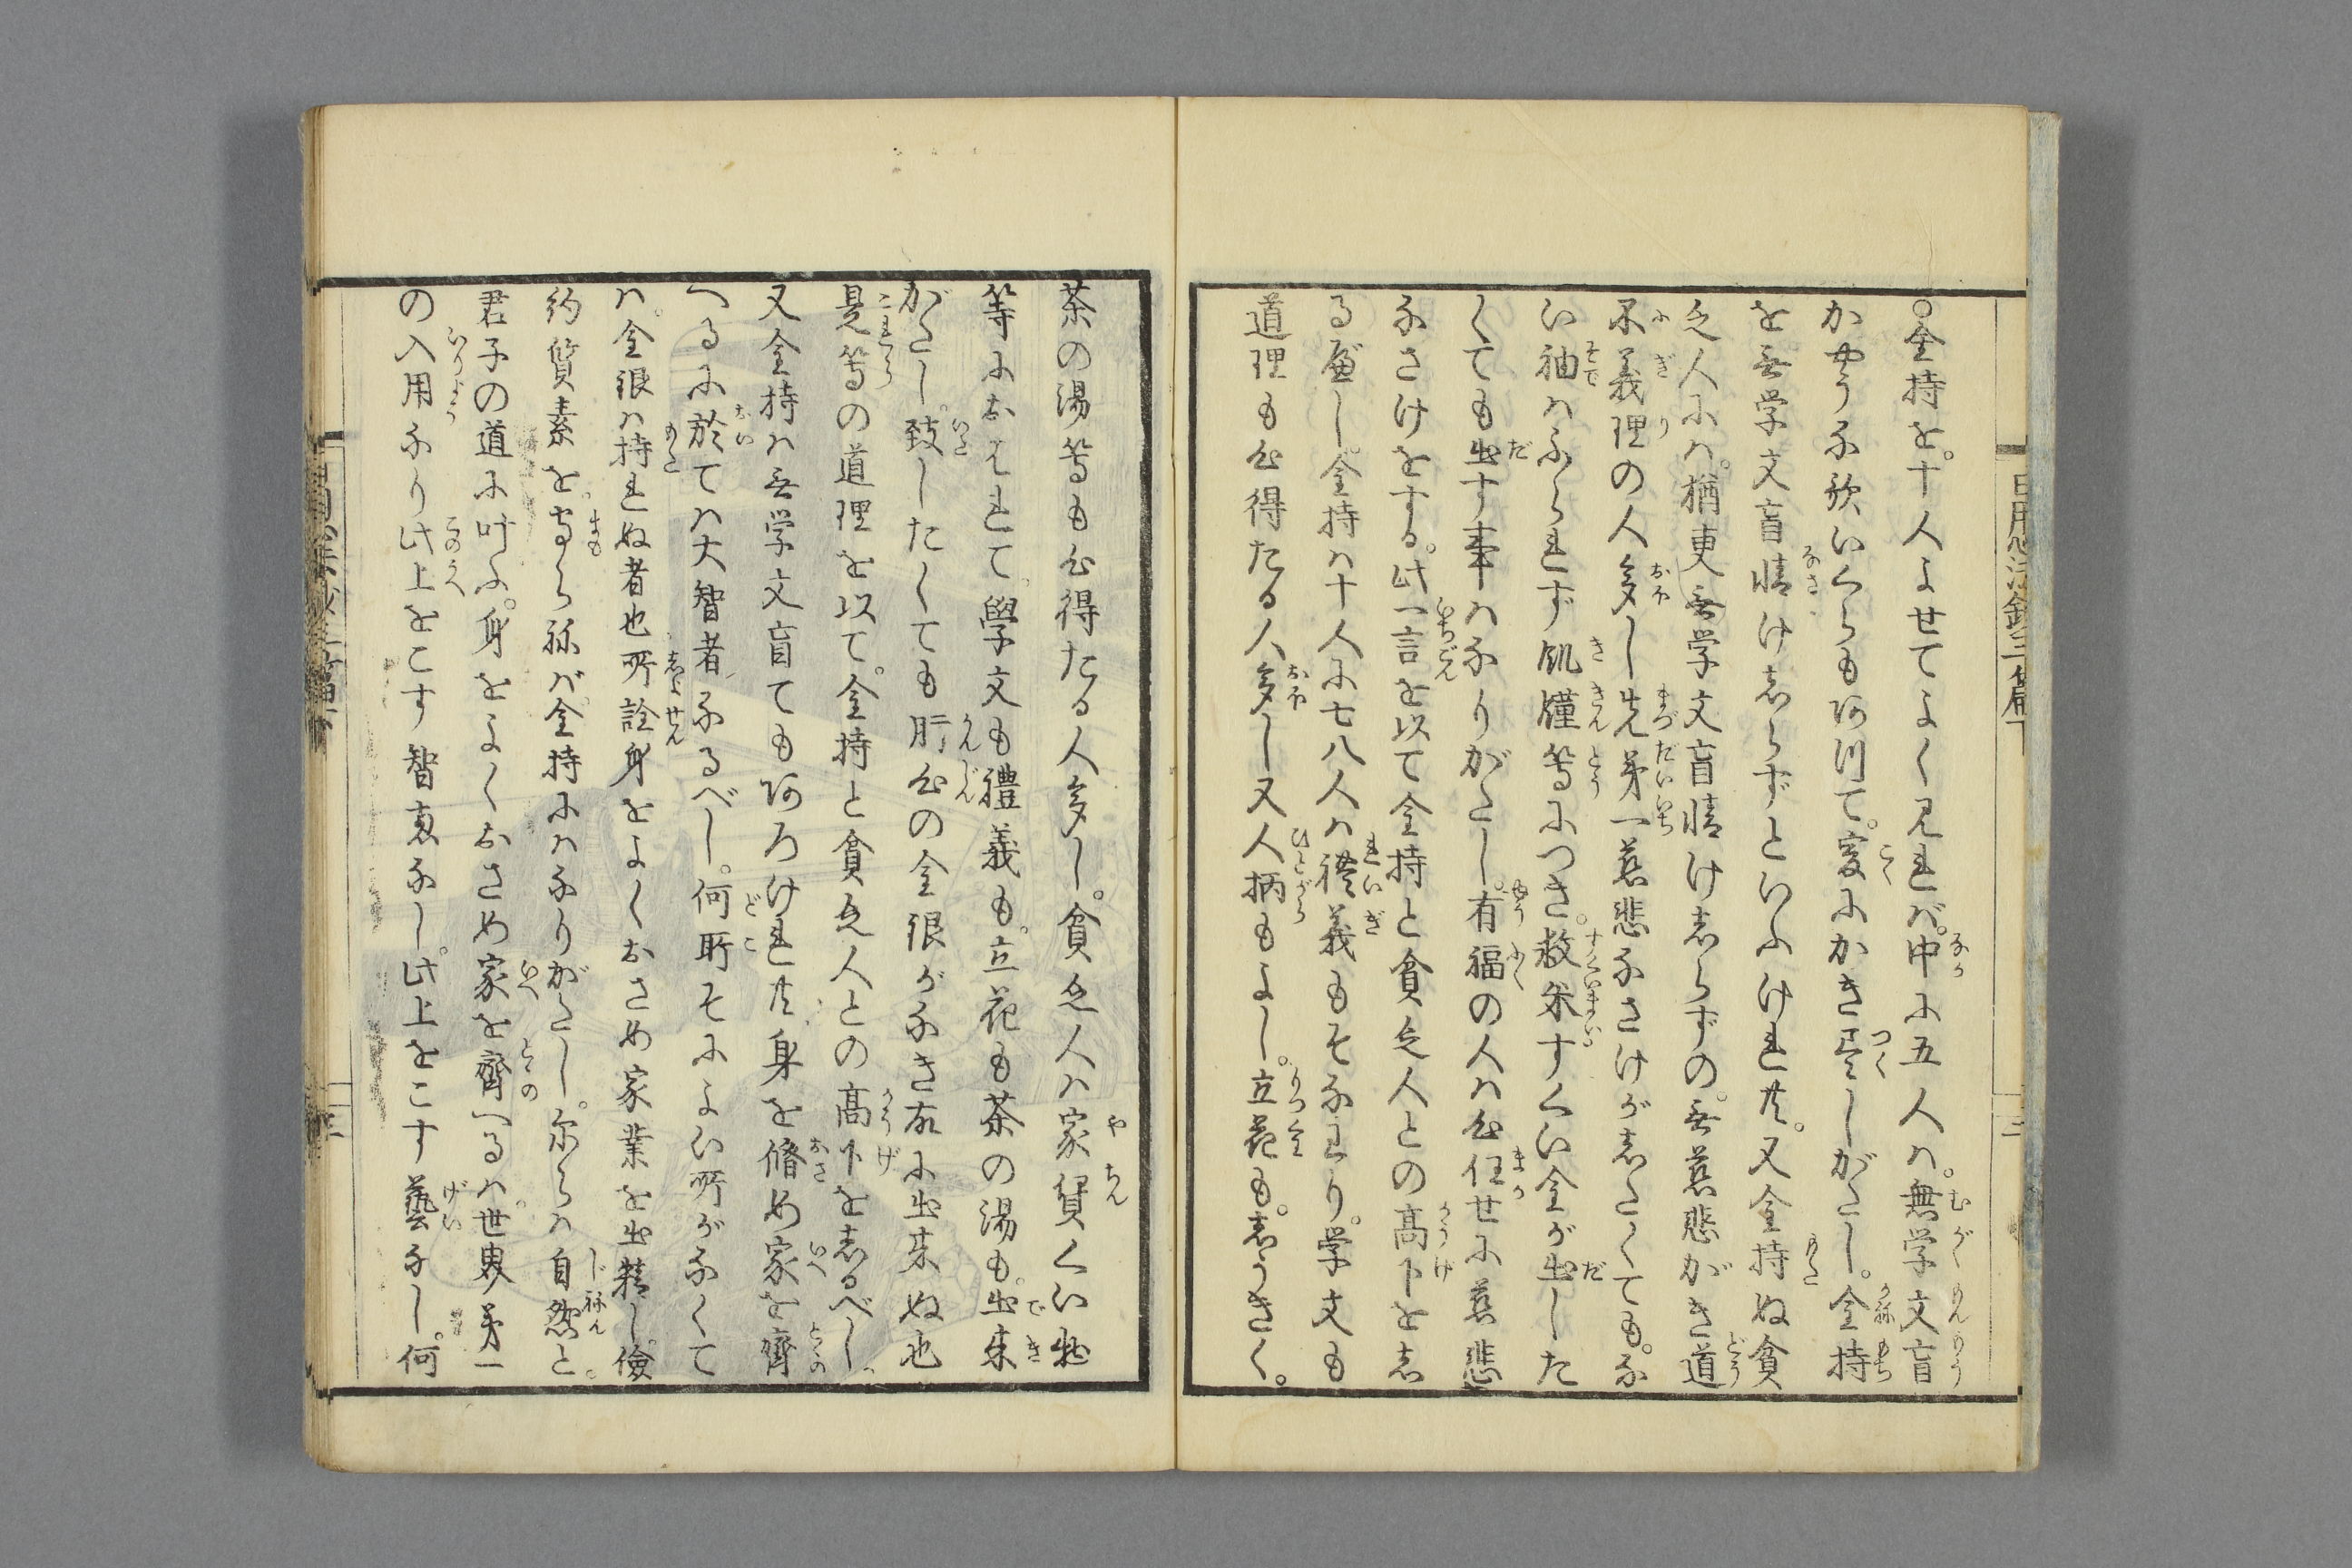 ○金持を。十人よせてよく見れバ。中に五人ハ。無学文盲
かやうな欲いくらも有て。爰にかき尽しがたし。金持
を無学文盲情けしらずといふけれ共。又金持ぬ貧
乏人にハ。猶更無学文盲情けしらずの。無慈悲がき道
不義理の人多し先第一慈悲なさけがしたくても。な
い袖ハふられず飢饉等につき。救米すくい金が出した
くても出す事ハなりがたし。有福の人ハ心任せに慈悲
なさけをする。此一言を以て金持と貧乏人との高下をし
る座し。金持ハ十人に七八人ハ禮義もそなわり。学文も
道理も心得たる人多し又人柄もよし。立花も。しうきく。
茶の湯等も心得たる人多し。貧乏人ハ家賃くい物
等におはれて。學文も禮義も。立花も茶の湯も。出来
がたし。致したくても肝心の金銀がなき故に出来ぬ也
是等の道理を以て。金持と貧乏人との高下をしるべし。
又金持ハ無学文盲ても有ろけれ共身を脩め家を齊
へるに於てハ大智者なるべし。何所そによい所がなくて
ハ。金銀ハ持れぬ者也所詮身をよくおさめ家業を出精し。儉
約質素を。守らねバ。金持にハなりがたし。尓らハ自然と。
君子の道に叶ふ。身をよくおさめ家を齊へるハ。世界第一
の入用なり此上をこす智恵なし。此上をこす藝なし。何